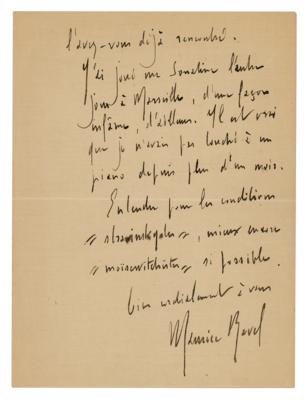 l'avez-vous déjà rencontré.
J'ai joué ma Sonatine l'autre
jour à Marseille, d'une façon
infâme, d'ailleurs. Il est vrai
que je n'avais pas touché à un
piano depuis plus d'un mois.
Entendu pour les conditions
"strawinskyales", mieux encore
"moïsewitchistes" si possible.
bien cordialement à vous
Maurice Ravel